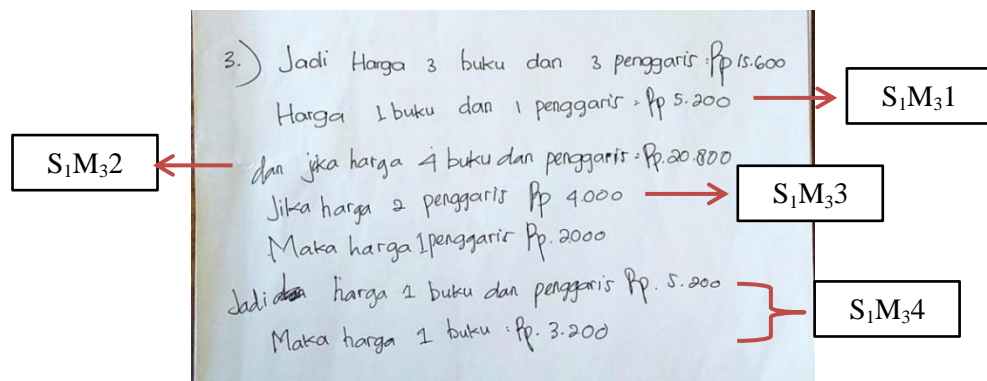 3.) Jadi Harga 3 buku dan 3 penggaris : Rp 15.600
Harga 1 buku dan 1 penggaris = Rp 5.200
S₁M₃1
S₁M₃2
dan jika harga 4 buku dan penggaris = Rp. 20.800
Jika harga 2 penggaris Rp 4.000
S₁M₃3
Maka harga 1 penggaris Rp. 2000
Jadi harga 1 buku dan penggaris Rp. 5.200
Maka harga 1 buku : Rp. 3.200
S₁M₃4